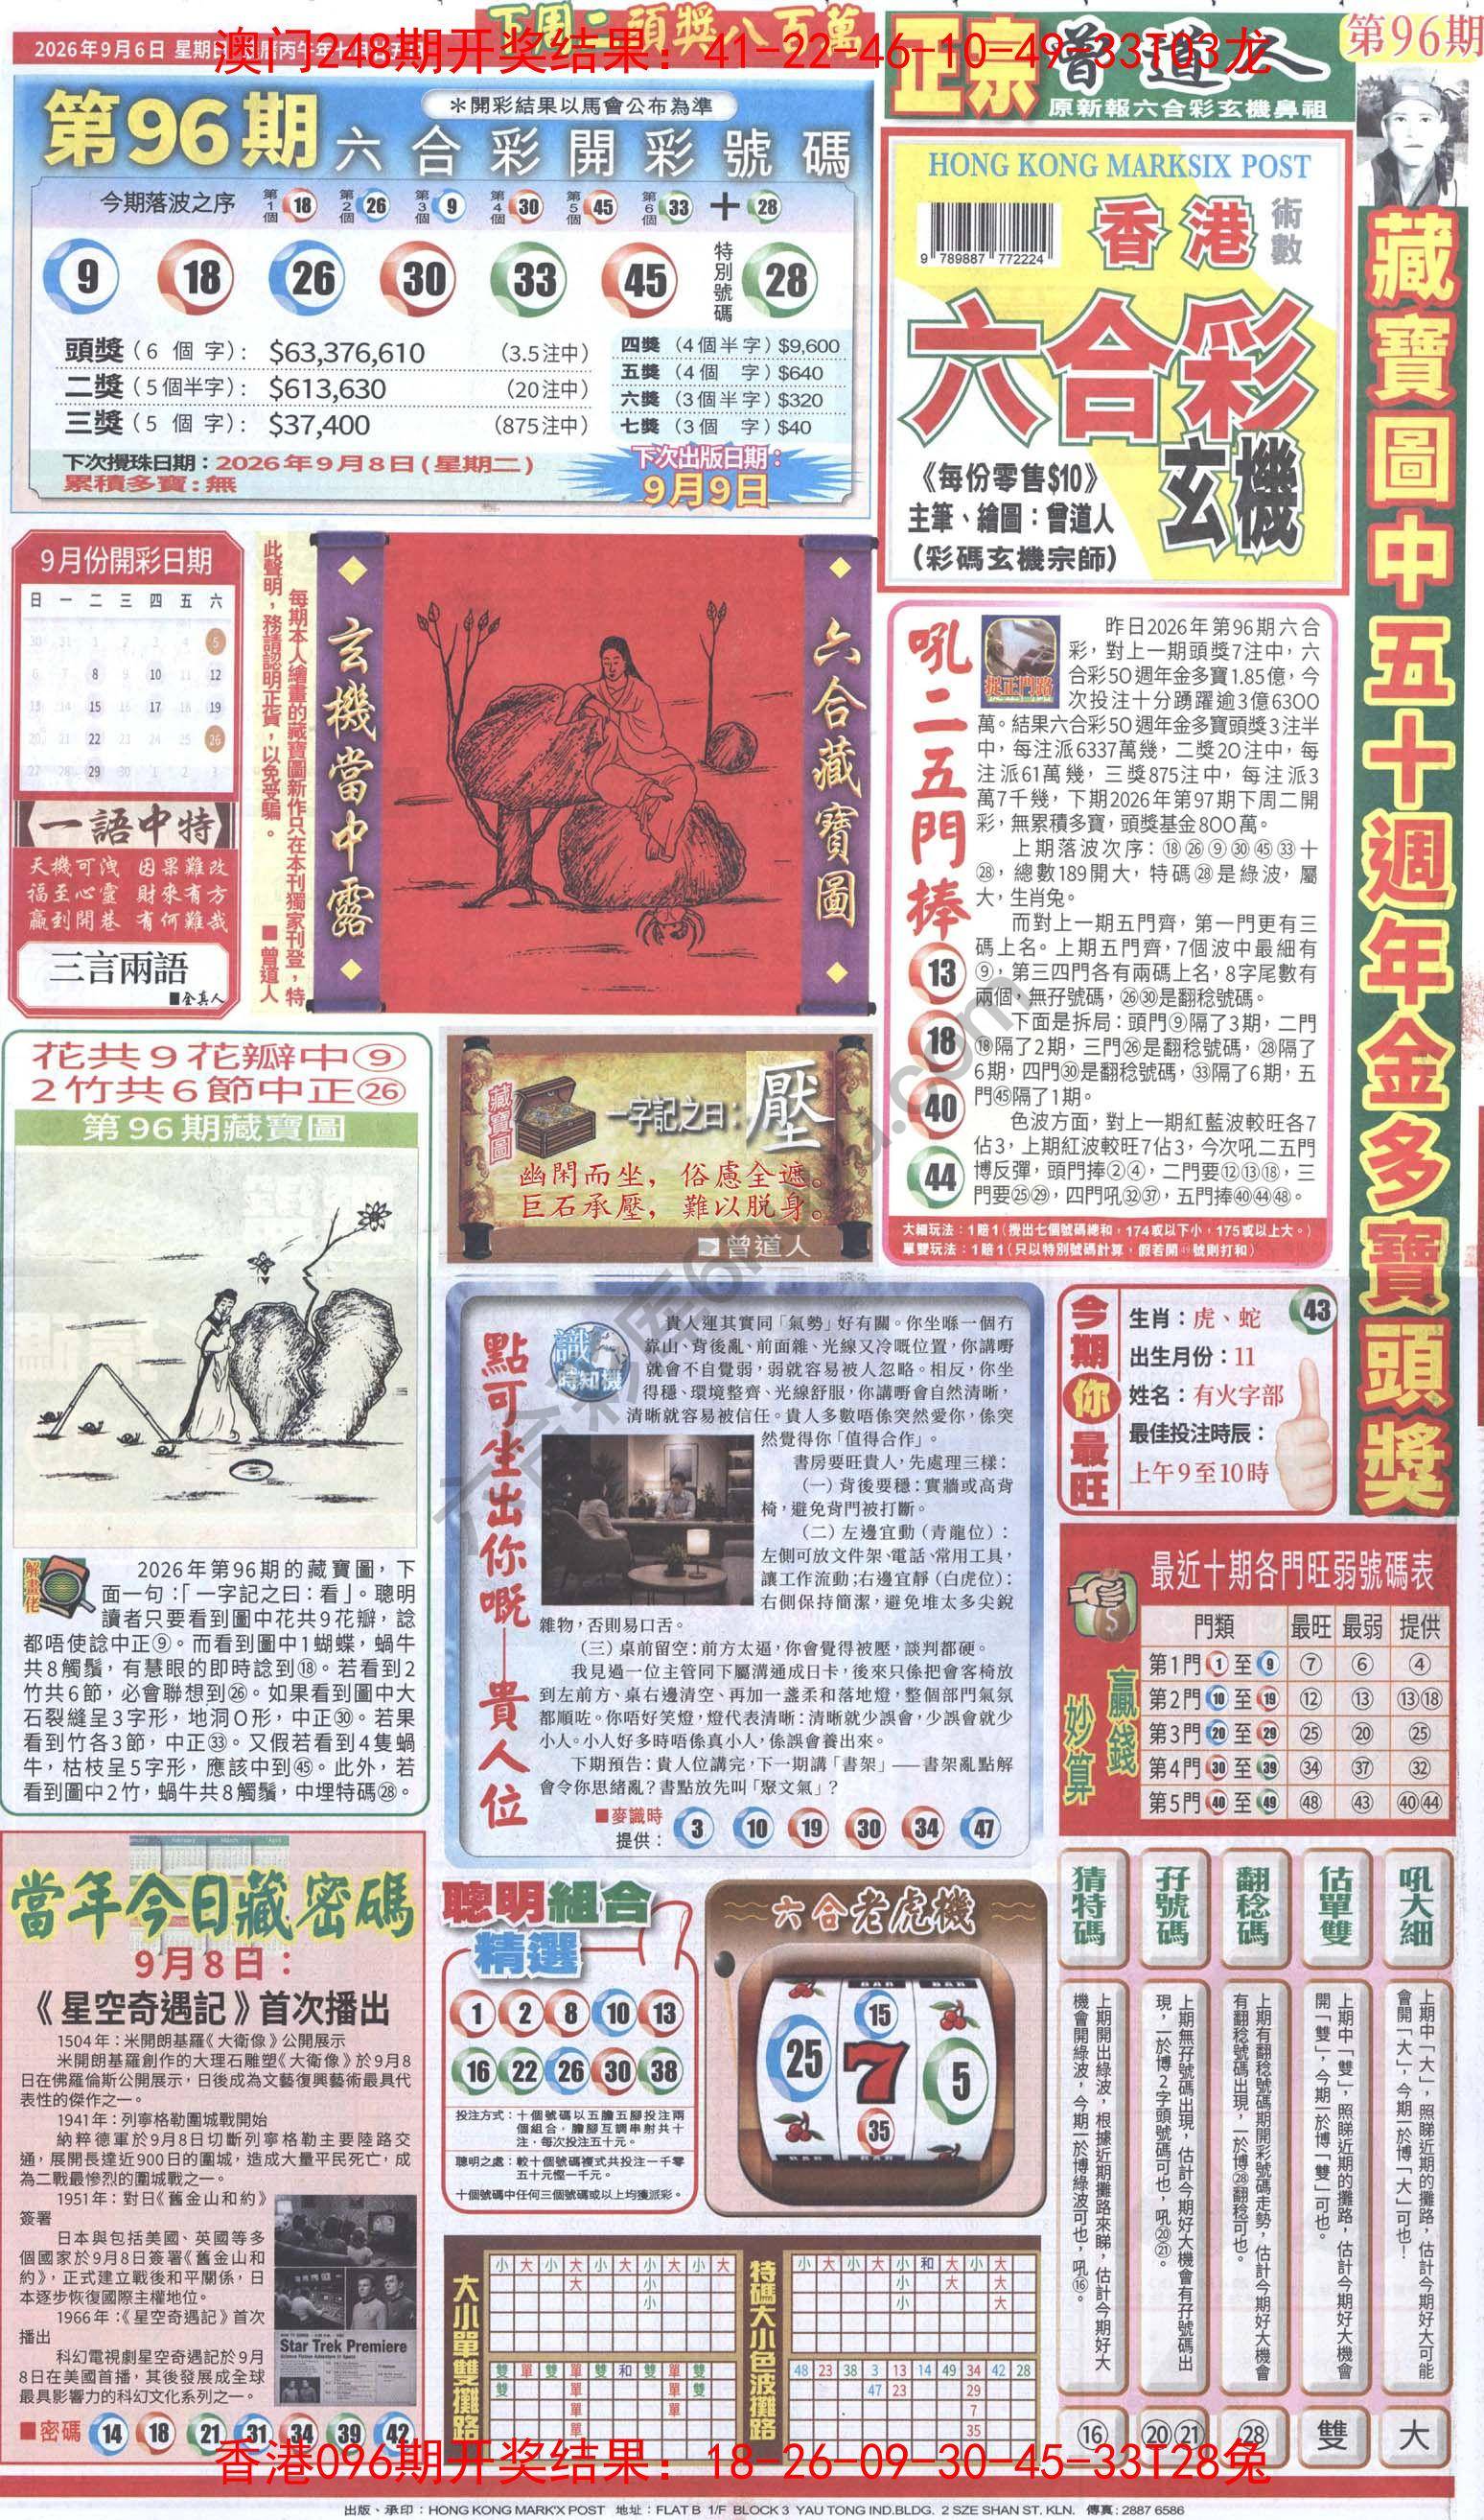 下周二頭獎八百萬
2026年9月6日 星期日
澳门248期开奖结果：41-22-46-10-49-33T03龙
正宗曾道人
原新報六合彩玄機鼻祖
第96期
第96期六合彩開彩號碼
＊開彩結果以馬會公布為準
今期落波之序 第1個 18 第2個 26 第3個 9 第4個 30 第5個 45 第6個 33 + 28
9 18 26 30 33 45 特別號碼 28
頭獎（6 個 字）： $63,376,610 （3.5注中）
二獎（5個半字）： $613,630 （20注中）
三獎（5 個 字）： $37,400 （875注中）
四獎（4個半字）$9,600
五獎（4個 字）$640
六獎（3個半字）$320
七獎（3個 字）$40
下次攪珠日期：2026年9月8日(星期二)
累積多寶：無
下次出版日期：
9月9日
HONG KONG MARKSIX POST
9 789887 772224
香港
術數
六合彩
玄機
《每份零售$10》
主筆、繪圖：曾道人
（彩碼玄機宗師）
藏寶圖中五十週年金多寶頭獎
9月份開彩日期
日 一 二 三 四 五 六
30 31 1 2 3 4 5
6 7 8 9 10 11 12
13 14 15 16 17 18 19
20 21 22 23 24 25 26
27 28 29 30 1 2 3
一語中特
天機可洩 因果難改
福至心靈 財來有方
贏到開巷 有何難哉
三言兩語
■全真人
每期本人繪畫的藏寶圖新作只在本刊獨家刊登，特
此聲明，務請認明正貨，以免受騙。 ■曾道人
玄機當中露
六合藏寶圖
吼二五門捧
13
18
40
44
捉正門路
昨日2026年第96期六合
彩，對上一期頭獎7注中，六
合彩50週年金多寶1.85億，今
次投注十分踴躍逾3億6300
萬。結果六合彩50週年金多寶頭獎3注半
中，每注派6337萬幾，二獎20注中，每
注派61萬幾，三獎875注中，每注派3
萬7千幾，下期2026年第97期下周二開
彩，無累積多寶，頭獎基金800萬。
上期落波次序：⑱㉖⑨㉚㊺㉝十
㉘，總數189開大，特碼㉘是綠波，屬
大，生肖兔。
而對上一期五門齊，第一門更有三
碼上名。上期五門齊，7個波中最細有
⑨，第三四門各有兩碼上名，8字尾數有
兩個，無孖號碼，㉖㉚是翻稔號碼。
下面是拆局：頭門⑨隔了3期，二門
⑱隔了2期，三門㉖是翻稔號碼，㉘隔了
6期，四門㉚是翻稔號碼，㉝隔了6期，五
門㊺隔了1期。
色波方面，對上一期紅藍波較旺各7
佔3，上期紅波較旺7佔3，今次吼二五門
博反彈，頭門捧②④，二門要⑫⑬⑱，三
門要㉕㉙，四門吼㉜㊲，五門捧㊵㊹㊽。
大細玩法：1賠1（攪出七個號碼總和，174或以下小，175或以上大。）
單雙玩法：1賠1（只以特別號碼計算，假若開㊾號則打和）
花共9花瓣中⑨
2竹共6節中正㉖
第96期藏寶圖
解畫佬
2026年第96期的藏寶圖，下
面一句：「一字記之曰：看」。聰明
讀者只要看到圖中花共9花瓣，諗
都唔使諗中正⑨。而看到圖中1蝴蝶，蝸牛
共8觸鬚，有慧眼的即時諗到⑱。若看到2
竹共6節，必會聯想到㉖。如果看到圖中大
石裂縫呈3字形，地洞O形，中正㉚。若果
看到竹各3節，中正㉝。又假若看到4隻蝸
牛，枯枝呈5字形，應該中到㊺。此外，若
看到圖中2竹，蝸牛共8觸鬚，中埋特碼㉘。
藏寶圖
一字記之曰：壓
幽閑而坐，俗慮全遮。
巨石承壓，難以脫身。
曾道人
點可坐出你嘅—貴人位
識時知機
貴人運其實同「氣勢」好有關。你坐喺一個冇
靠山、背後亂、前面雜、光線又冷嘅位置，你講嘢
就會不自覺弱，弱就容易被人忽略。相反，你坐
得穩、環境整齊、光線舒服，你講嘢會自然清晰，
清晰就容易被信任。貴人多數唔係突然愛你，係突
然覺得你「值得合作」。
書房要旺貴人，先處理三樣：
（一）背後要穩：實牆或高背
椅，避免背門被打斷。
（二）左邊宜動（青龍位）：
左側可放文件架、電話、常用工具，
讓工作流動；右邊宜靜（白虎位）：
右側保持簡潔，避免堆太多尖銳
雜物，否則易口舌。
（三）桌前留空：前方太逼，你會覺得被壓，談判都硬。
我見過一位主管同下屬溝通成日卡，後來只係把會客椅放
到左前方、桌右邊清空、再加一盞柔和落地燈，整個部門氣氛
都順咗。你唔好笑燈，燈代表清晰：清晰就少誤會，少誤會就少
小人。小人好多時唔係真小人，係誤會養出來。
下期預告：貴人位講完，下一期講「書架」——書架亂點解
會令你思緒亂？書點放先叫「聚文氣」？
■麥識時
提供： 3 10 19 30 34 47
今期你最旺
生肖：虎、蛇 43
出生月份：11
姓名：有火字部
最佳投注時辰：
上午9至10時
贏錢妙算
最近十期各門旺弱號碼表
門類 最旺 最弱 提供
第1門 1 至 9 ⑦ ⑥ ④
第2門 10 至 19 ⑫ ⑬ ⑬⑱
第3門 20 至 29 ㉕ ⑳ ㉕
第4門 30 至 39 ㉞ ㊲ ㉜
第5門 40 至 49 ㊽ ㊸ ㊵㊹
當年今日藏密碼
9月8日：
《星空奇遇記》首次播出
1504年：米開朗基羅《大衛像》公開展示
米開朗基羅創作的大理石雕塑《大衛像》於9月8
日在佛羅倫斯公開展示，日後成為文藝復興藝術最具代
表性的傑作之一。
1941年：列寧格勒圍城戰開始
納粹德軍於9月8日切斷列寧格勒主要陸路交
通，展開長達近900日的圍城，造成大量平民死亡，成
為二戰最慘烈的圍城戰之一。
1951年：對日《舊金山和約》
簽署
日本與包括美國、英國等多
個國家於9月8日簽署《舊金山和
約》，正式建立戰後和平關係，日
本逐步恢復國際主權地位。
1966年：《星空奇遇記》首次
播出
科幻電視劇星空奇遇記於9月
8日在美國首播，其後發展成全球
最具影響力的科幻文化系列之一。
Star Trek Premiere
■密碼 14 18 21 31 34 39 42
聰明組合
精選
1 2 8 10 13
16 22 26 30 38
投注方式：十個號碼以五膽五腳投注兩
個組合，膽腳互調串射共十
注，每次投注五十元。
聰明之處：較十個號碼複式共投注一千零
五十元慳一千元。
十個號碼中任何三個號碼或以上均獲派彩。
六合老虎機
BAR BAR BAR
15
25 7 5
35
大小單雙攤路
小 大 小 大 小 大 小 大 小 大
大 小
小
雙 單 雙 單 雙 和 雙 單 雙
雙 單 單 雙
單 單
單
特碼大小色波攤路
小 大 小 大 小 和 大 小 大
小 大 大
小 大
48 23 38 3 13 14 49 34 42 28
47 23 29
7
35
猜特碼
上期開出綠波，根據近期攤路來睇，估計今期好大
機會開綠波，今期一於博綠波可也，吼⑯。
⑯
孖號碼
上期無孖號碼出現，估計今期好大機會有孖號碼出
現，一於博2字頭號碼可也，吼⑳㉑。
⑳㉑
翻稔碼
上期有翻稔號碼期開彩號碼走勢，估計今期好大機會
有翻稔號碼出現，一於博㉘翻稔可也。
㉘
估單雙
上期中「雙」，照睇近期的攤路，估計今期好大機會
開「雙」，今期一於博「雙」可也。
雙
吼大細
上期中「大」，照睇近期的攤路，估計今期好大可能
會開「大」，今期一於博「大」可也！
大
香港096期开奖结果：18-26-09-30-45-33T28兔
出版、承印：HONG KONG MARK'X POST 地址：FLAT B 1/F BLOCK 3 YAU TONG IND.BLDG. 2 SZE SHAN ST. KLN. 傳真：2887 6586